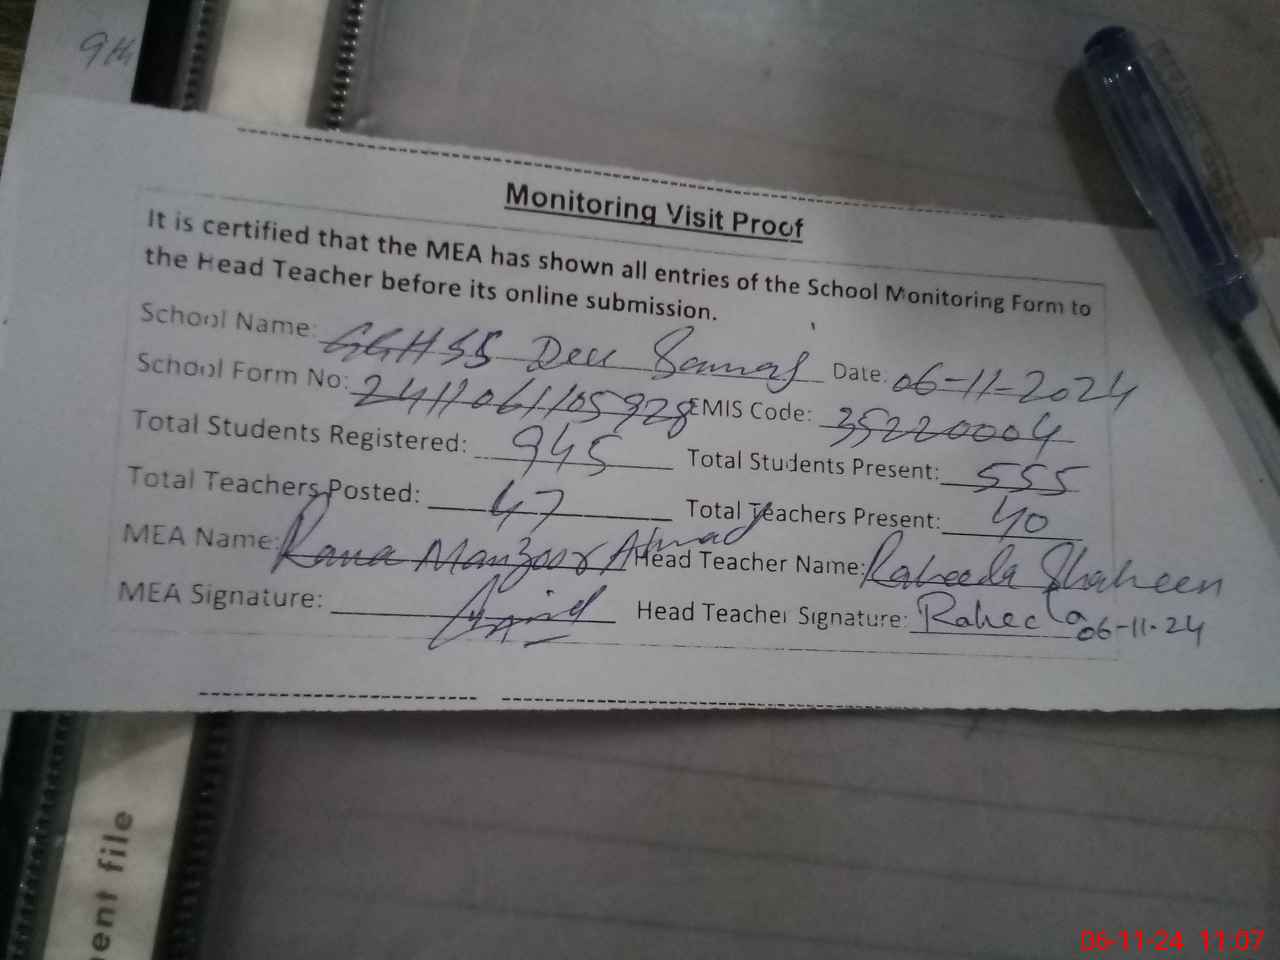 9th
Monitoring Visit Proof
It is certified that the MEA has shown all entries of the School Monitoring Form to
the Head Teacher before its online submission.
School Name: GGHSS Dev Samaj Date: 06-11-2024
School Form No: 2411061105928 EMIS Code: 35220004
Total Students Registered: 945 Total Students Present: 555
Total Teachers Posted: 47 Total Teachers Present: 40
MEA Name: Rana Manzoor Ahmad Head Teacher Name: Raheela Shaheen
MEA Signature: Head Teacher Signature: Raheela 06-11-24
ent file
06-11-24 11:07